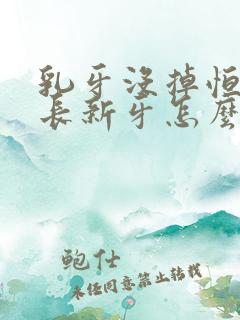 乳牙没掉恒
长新牙怎么
鲍仕
未经同意禁止转载